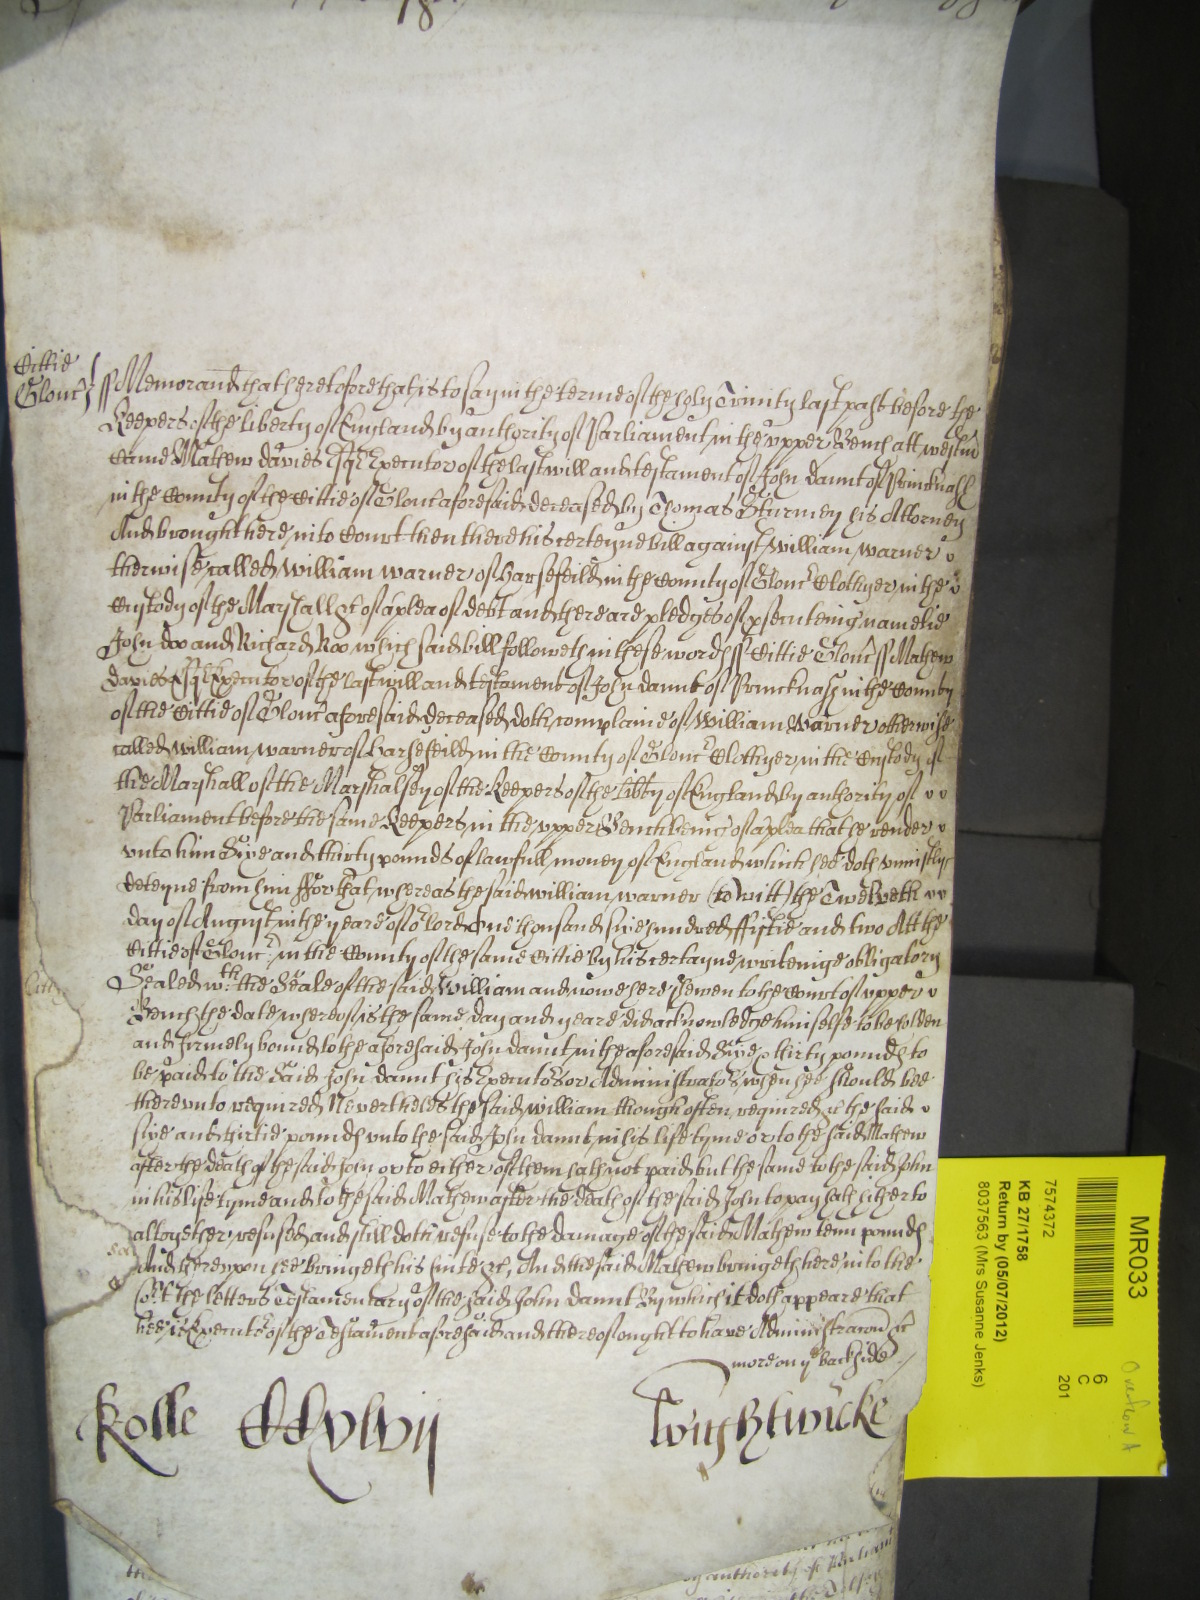 Cittie
Glouc ss Memorand that heretofore that is to say in the terme of the holy Trinity last past before the
Keepers of the liberty of England by authority of Parliament in the upper Bench att westm
came Mathew davies Esqr Executor of the last will and testament of John dannt of Princknash
in the County of the Cittie of Glouc aforesaid deceased by Thomas Sturmey his Attorney
And brought here into Court then there his certeyne bill against William warner o
therwise called William warner of harsefeild in the County of Glouc Clothyer in the
Custody of the Marshall &c of a plea of debt and there are pledges of psecuteing namelie
John doo and Richard Roo which said bill followeth in these words ss Cittie Glouc ss Mathew
davies Esqr Executor of the last will and testament of John dannt of Princknash in the County
of the Cittie of Glouc aforesaid deceased doth complaine of William Warner otherwise
called William warner of harsefeild in the County of Glouc Clothyer in the Custody of
the Marshall of the Marshalsey of the Keepers of the libty of England by authority of
Parliament before the same Keepers in the upper Bench being of a plea that he render
unto him Five and thirty pounds of lawfull money of England which hee doth uniustly
deteyne from him ffor that whereas the said william warner (to witt) the Twelveth
day of August in the yeare of or lord One thousand six hundred ffiftie and two Att the
Cittie of Glouc in the County of the same Cittie by his certayne writeinge obligatory
Sealed wth the Seale of the said William and nowe here shewen to the Court of upper
Bench the date whereof is the same day and yeare did acknowledge himselfe to be holden
and firmely bound to the aforesaid John dannt in the aforesaid Five thirty pounds to
be paid to the said John dannt his Executors or Administrators when hee should bee
thereunto required Neverthelес the said william though often required &c the said
five and thirtie pounds unto the said John dannt in his life tyme or to the said Mathew
after the death of the said John or to either of them hath not paid but the same to the said John
in his life tyme and to the said Mathew after the death of the said John to pay hath hitherto
altogether refused and still doth refuse to the damage of the said Mathew tenn pounds
And thereupon hee bringeth his suite &c, And the said Mathew bringeth here into the
Cort the letters Testamentary of the said John dannt By which it doth appeare that
hee is Executor of the Testament aforesaid and thereof ought to have Administracon &c
more on ye backside
Rolle CCxlvij Wightwicke
MR033
Overflow A
6
C
201
7574372
KB 27/1758
Return by (05/07/2012)
8037563 (Mrs Susanne Jenks)